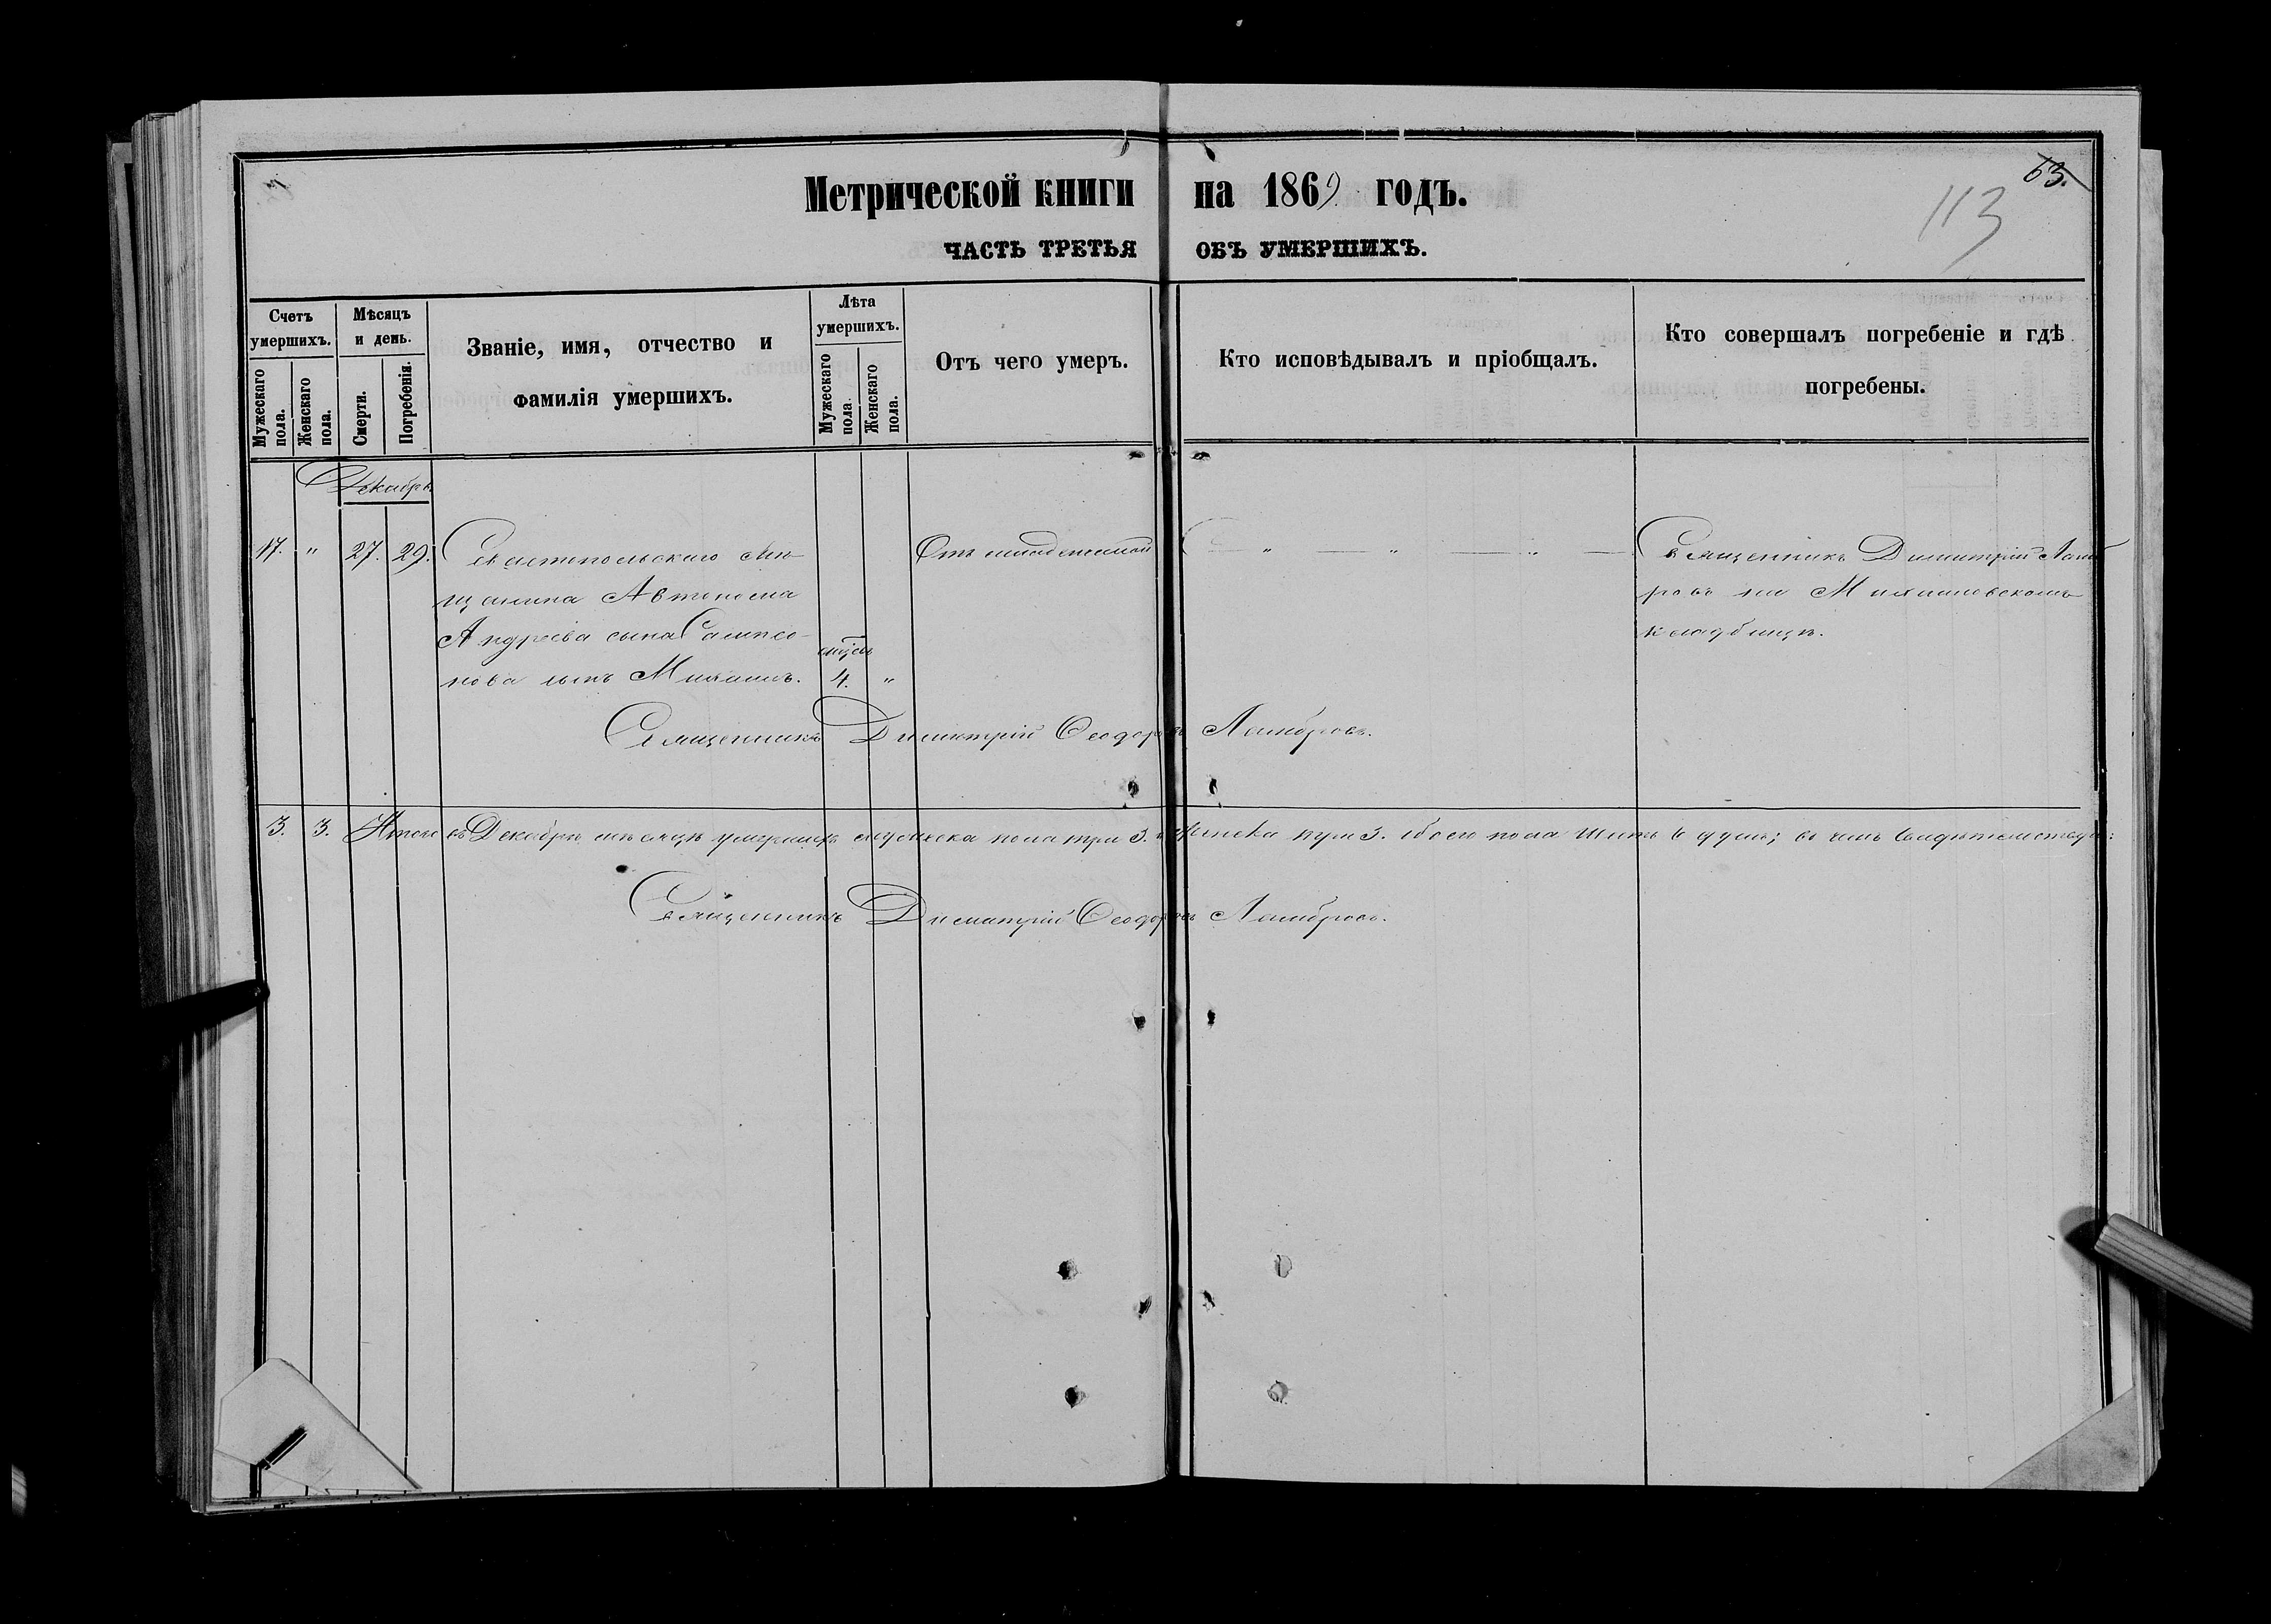 63.
113
Метрической книги на 1869 годъ.
ЧАСТЬ ТРЕТЬЯ ОБЪ УМЕРШИХЪ.
Счетъ умершихъ.
Мужескаго пола.
Женскаго пола.
Мѣсяцъ и день.
Смерти.
Погребенія.
Званіе, имя, отчество и
фамилія умершихъ.
Лѣта умершихъ.
Мужескаго пола.
Женскаго пола.
Отъ чего умеръ.
Кто исповѣдывалъ и пріобщалъ.
Кто совершалъ погребеніе и гдѣ
погребены.
Декабрь
17. " 27. 29. Севастопольскаго мѣ-
щанина Автонома
Андреева сына Сампсо-
нова сынъ
мѣсяц.
4. "
Отъ младенческой
" " "
Священникъ Димитрій Ламб
ровъ на
кладбищѣ.
Священникъ Димитрій Ѳеодоровъ Ламбровъ.
3. 3. Итого въ Декабрѣ мѣсяцѣ умершихъ мужеска пола три 3. женска три 3. обоего пола шесть 6 душъ; въ чемъ свидѣтельствую:
Священникъ Димитрій Ѳеодоровъ Ламбровъ.